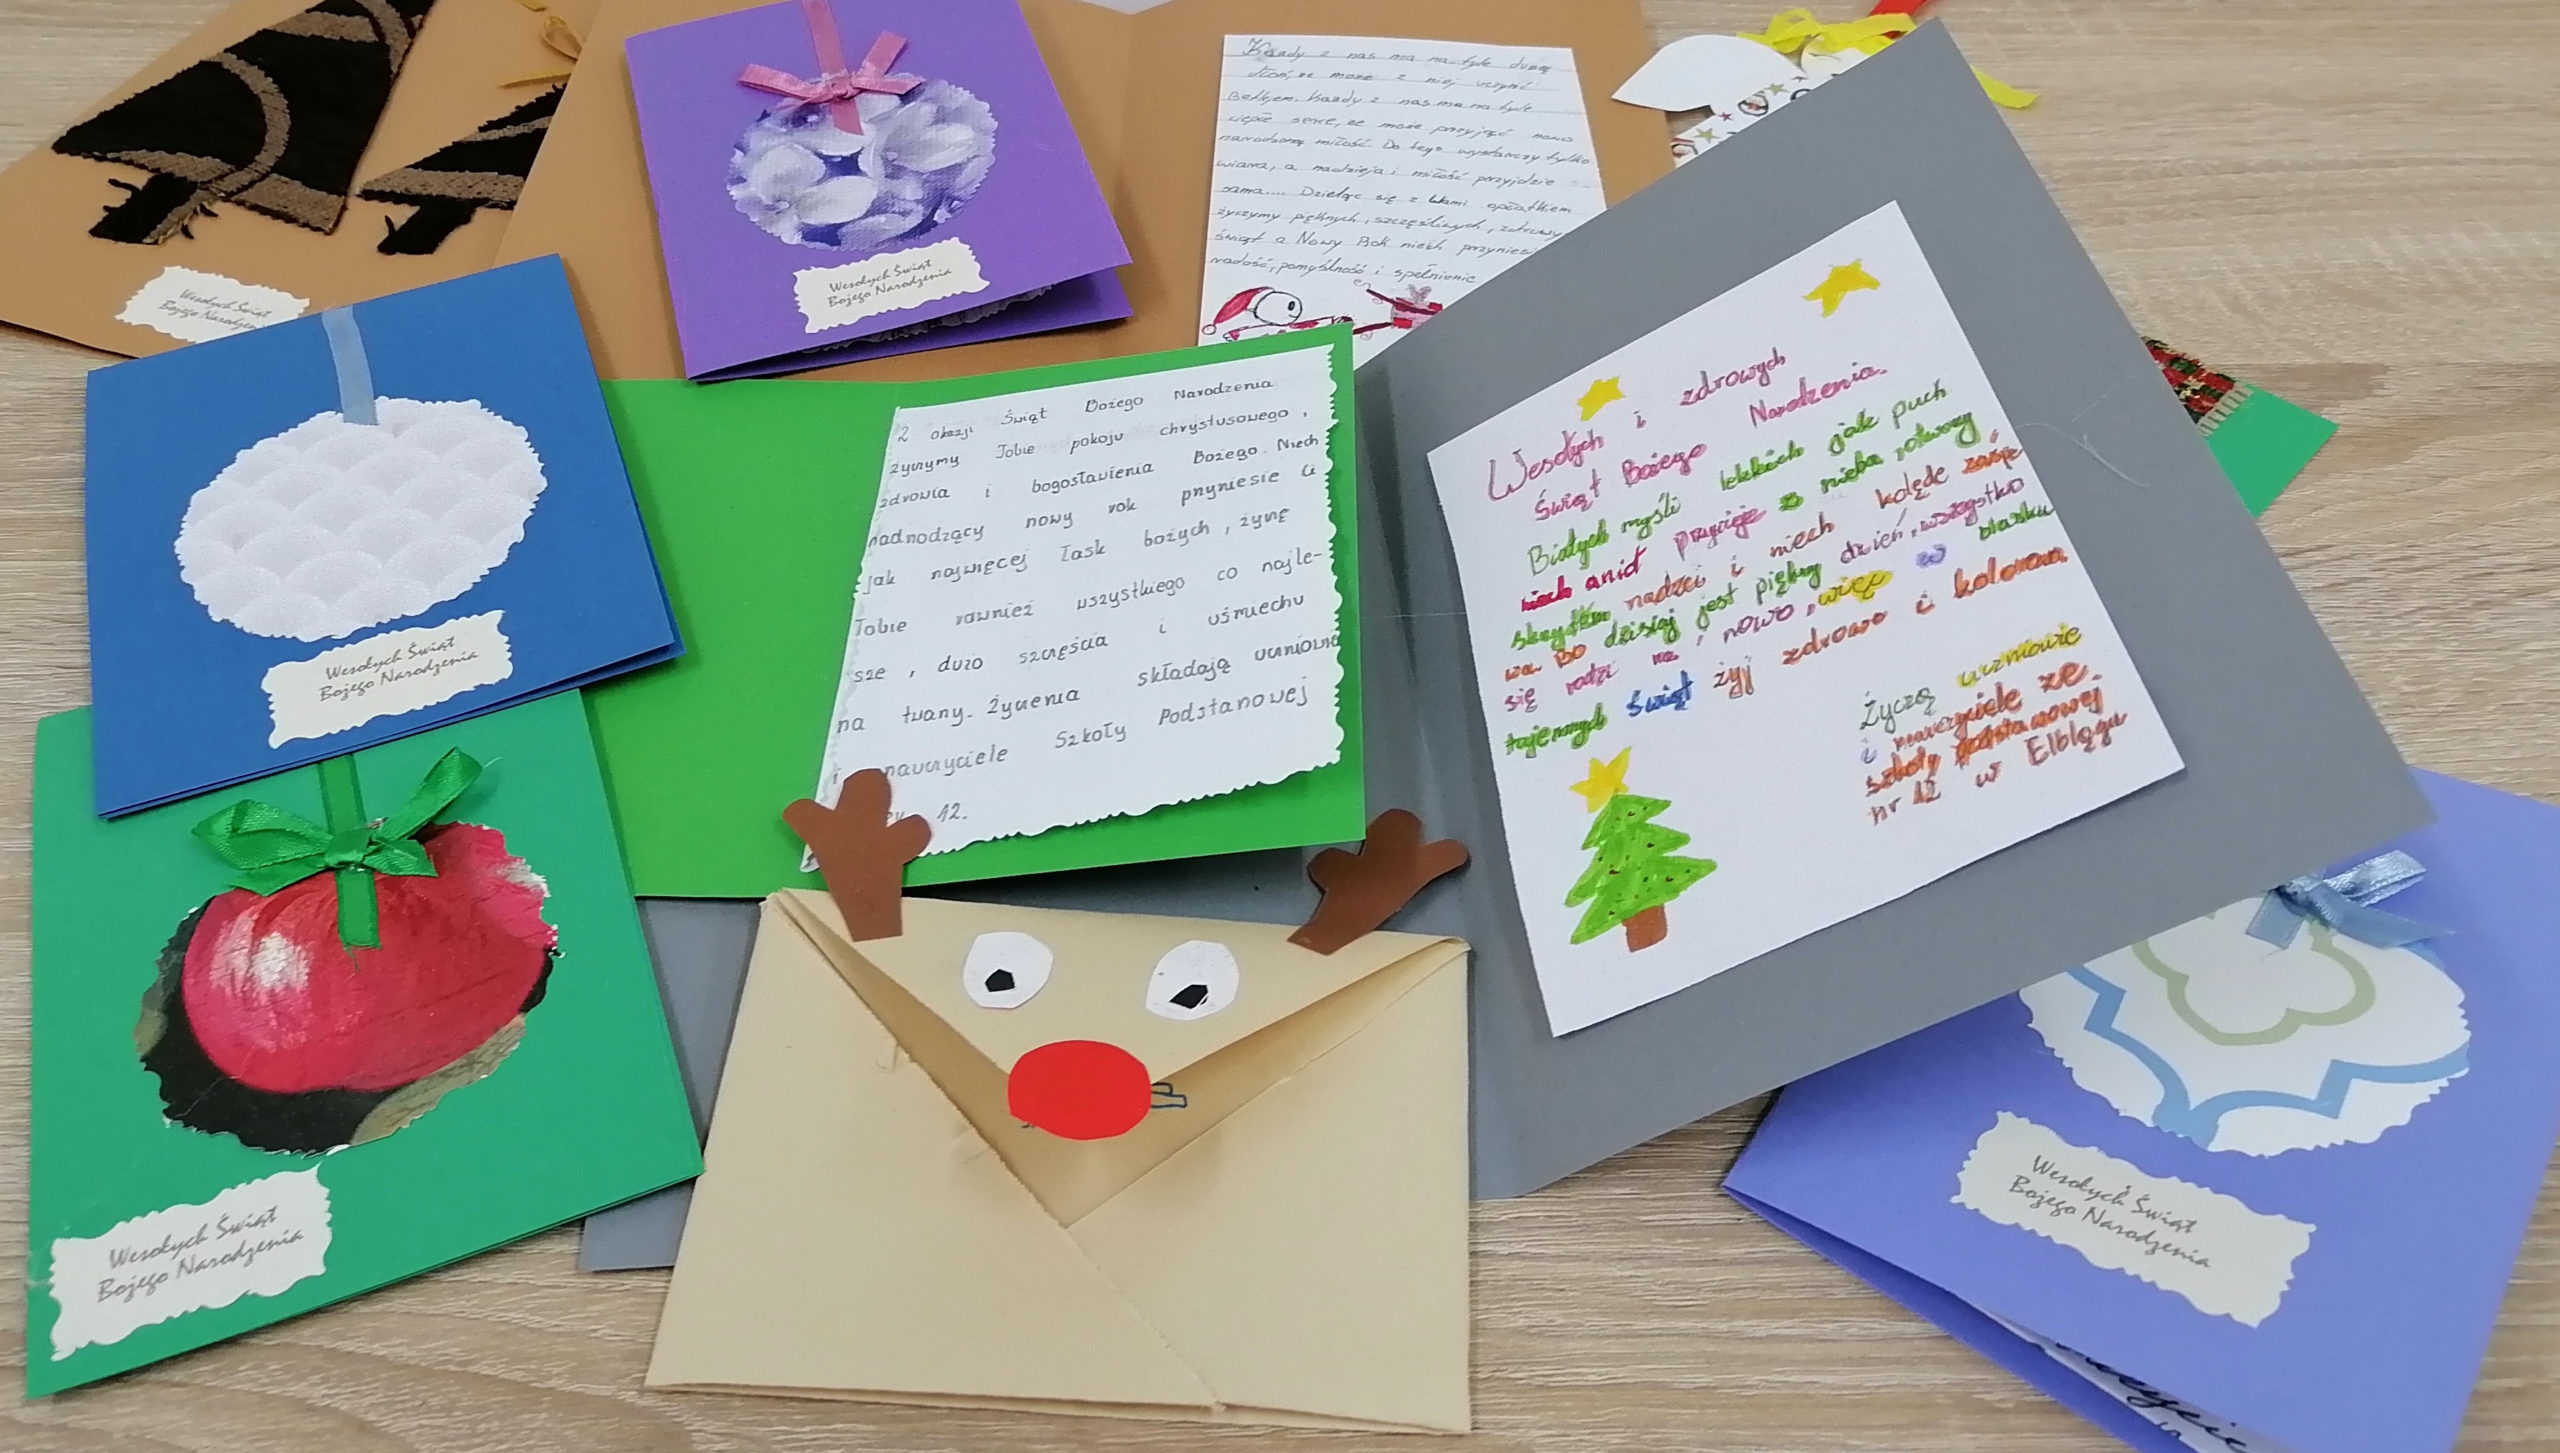 Każdy z nas ma na tyle dużą
dłoń, że może z niej uczynić
Betlejem. Każdy z nas ma na tyle
ciepłe serce, że może przyjąć nowo
narodzoną miłość. Do tego wystarczy tylko
wiara, a nadzieja i miłość przyjdzie
sama.... Dzieląc się z Wami opłatkiem
życzymy pięknych, szczęśliwych, zdrowy
świąt a Nowy Rok niech przyniesi
radość, pomyślność i spełnienie
Wesołych Świąt
Bożego Narodzenia
Wesołych Świąt
Bożego Narodzenia
Wesołych Świąt
Bożego Narodzenia
Z okazji Świąt Bożego Narodzenia
życzymy Tobie pokoju chrystusowego,
zdrowia i bogosławienia Bożego. Niech
nadhodzący nowy rok przyniesie Ci
jak najwięcej łask bożych, żynę
Tobie również wszystkiego co najle-
sze, dużo szczęścia i uśmiechu
na twary. Życzenia składają uczniowie
i nauczyciele Szkoły Podstawowej
12.
Wesołych i zdrowych
Świąt Bożego Narodzenia.
Białych myśli lekkich jak puch
niech anioł przyniesie z nieba, otworzy
skrzydła nadziei i niech kolędę zaśpie
wa. Bo dzisiaj jest piękny dzień, wszystko
się rodzi na nowo, więc w blasku
tajemnych świąt żyj zdrowo i kolorowo.
Życzą uczniowie
i nauczyciele ze
szkoły podstawowej
nr 12 w Elblągu
Wesołych Świąt
Bożego Narodzenia
Wesołych Świąt
Bożego Narodzenia